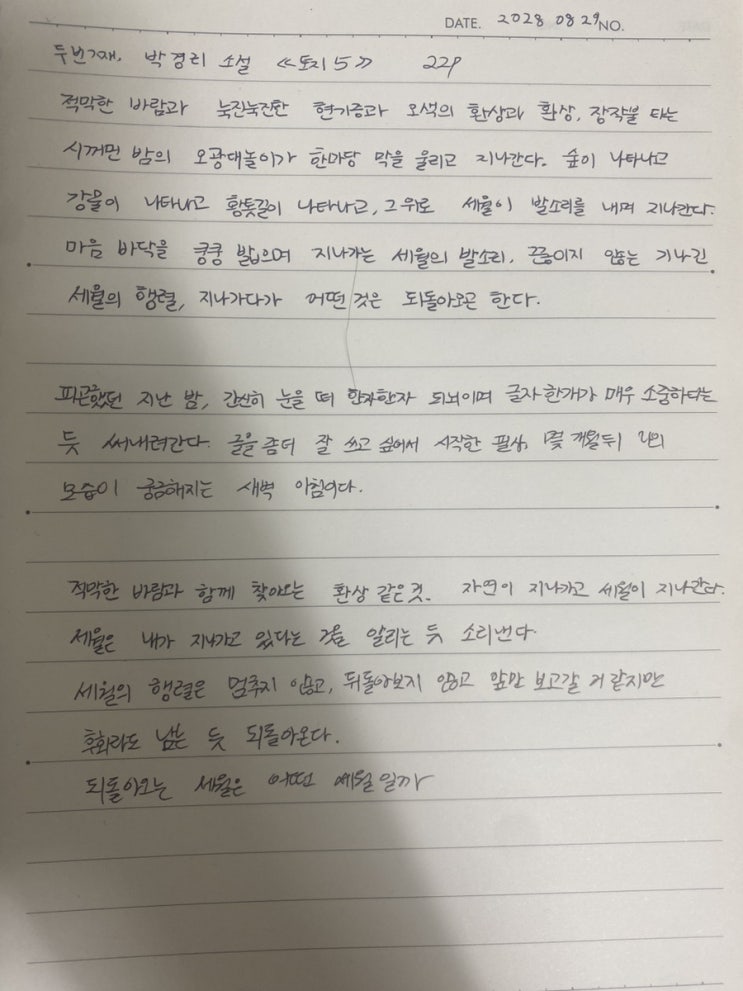 DATE. 2028 08 29 NO.
두번째. 박경리 소설 《토지 5》 22P
적막한 바람과 눅진눅진한 현기증과 오색의 환상과 환상, 장작불 타는
시꺼먼 밤의 오광대놀이가 한마당 막을 올리고 지나간다. 숲이 나타나고
강물이 나타나고 황톳길이 나타나고, 그 위로 세월이 발소리를 내며 지나간다.
마음 바닥을 쿵쿵 밟으며 지나가는 세월의 발소리, 끊이지 않는 기나긴
세월의 행렬, 지나가다가 어떤 것은 되돌아오곤 한다.
피곤했던 지난 밤, 간신히 눈을 떠 한자한자 되뇌이며 글자 한개가 매우 소중하다는
듯 써내려간다. 글을 좀더 잘 쓰고 싶어서 시작한 필사, 몇 개월뒤 나의
모습이 궁금해지는 새벽 아침이다.
적막한 바람과 함께 찾아오는 환상 같은 것. 자연이 지나가고 세월이 지나간다.
세월은 내가 지나가고 있다는 것을 알리는 듯 소리낸다.
세월의 행렬은 멈추지 않고, 뒤돌아보지 않고 앞만 보고갈 거 같지만
후회라도 남는 듯 되돌아온다.
되돌아오는 세월은 어떤 세월일까